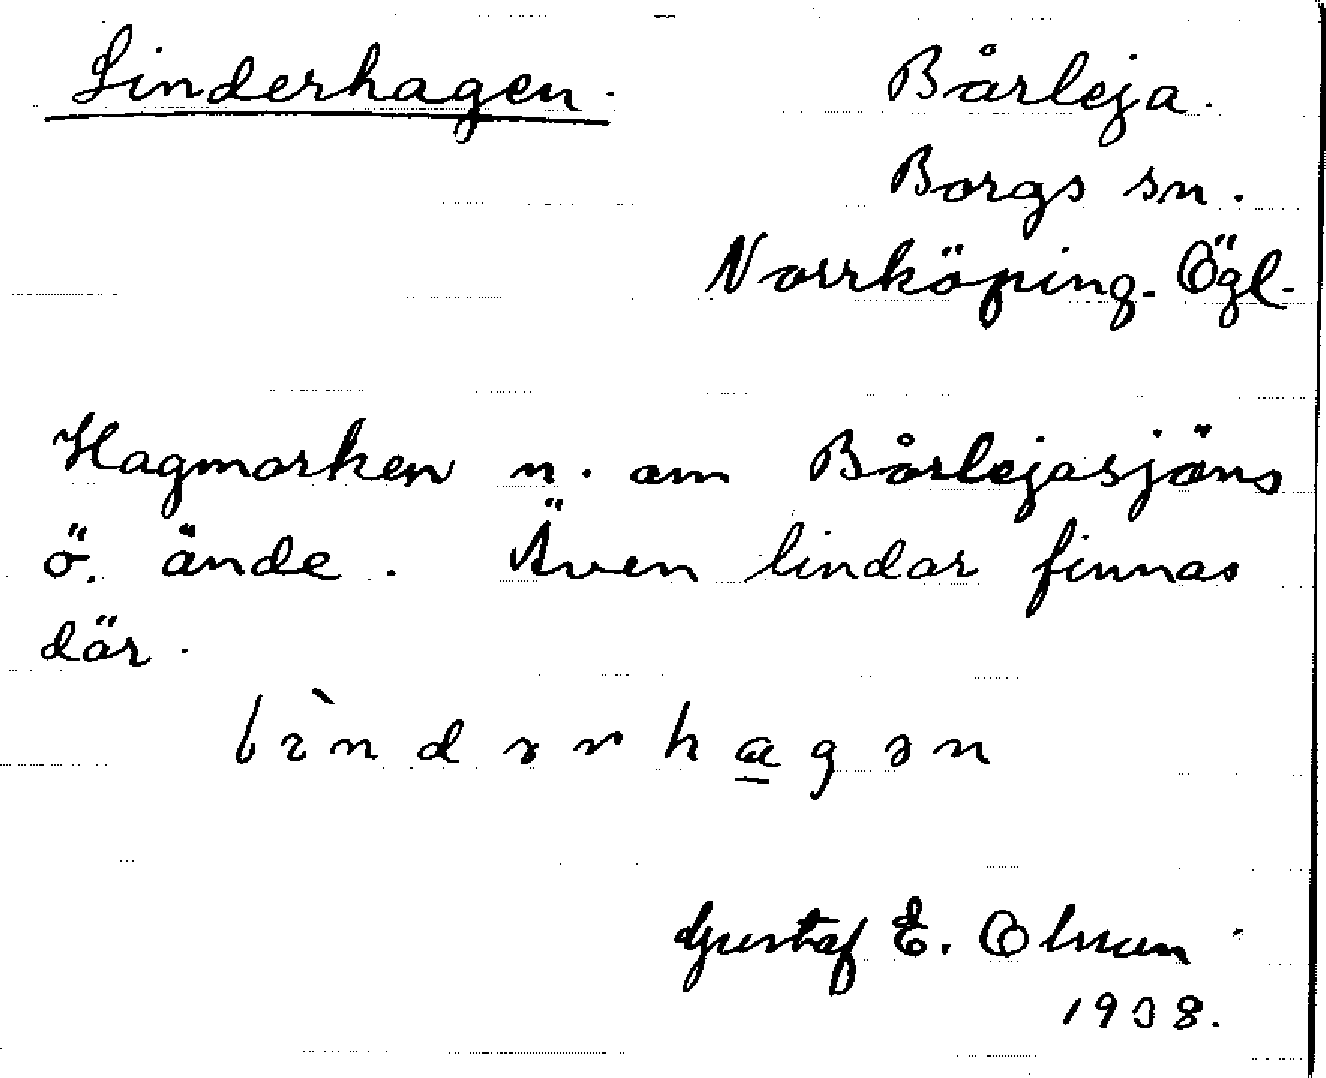 Linderhagen. Bårleja.
Borgs sn.
Norrköping. Ögl.
Hagmarken n. om Bårlejasjöns
ö. ände. Även lindar finnas
där.
lìndərhagən
Gustaf E. Olsson
1938.